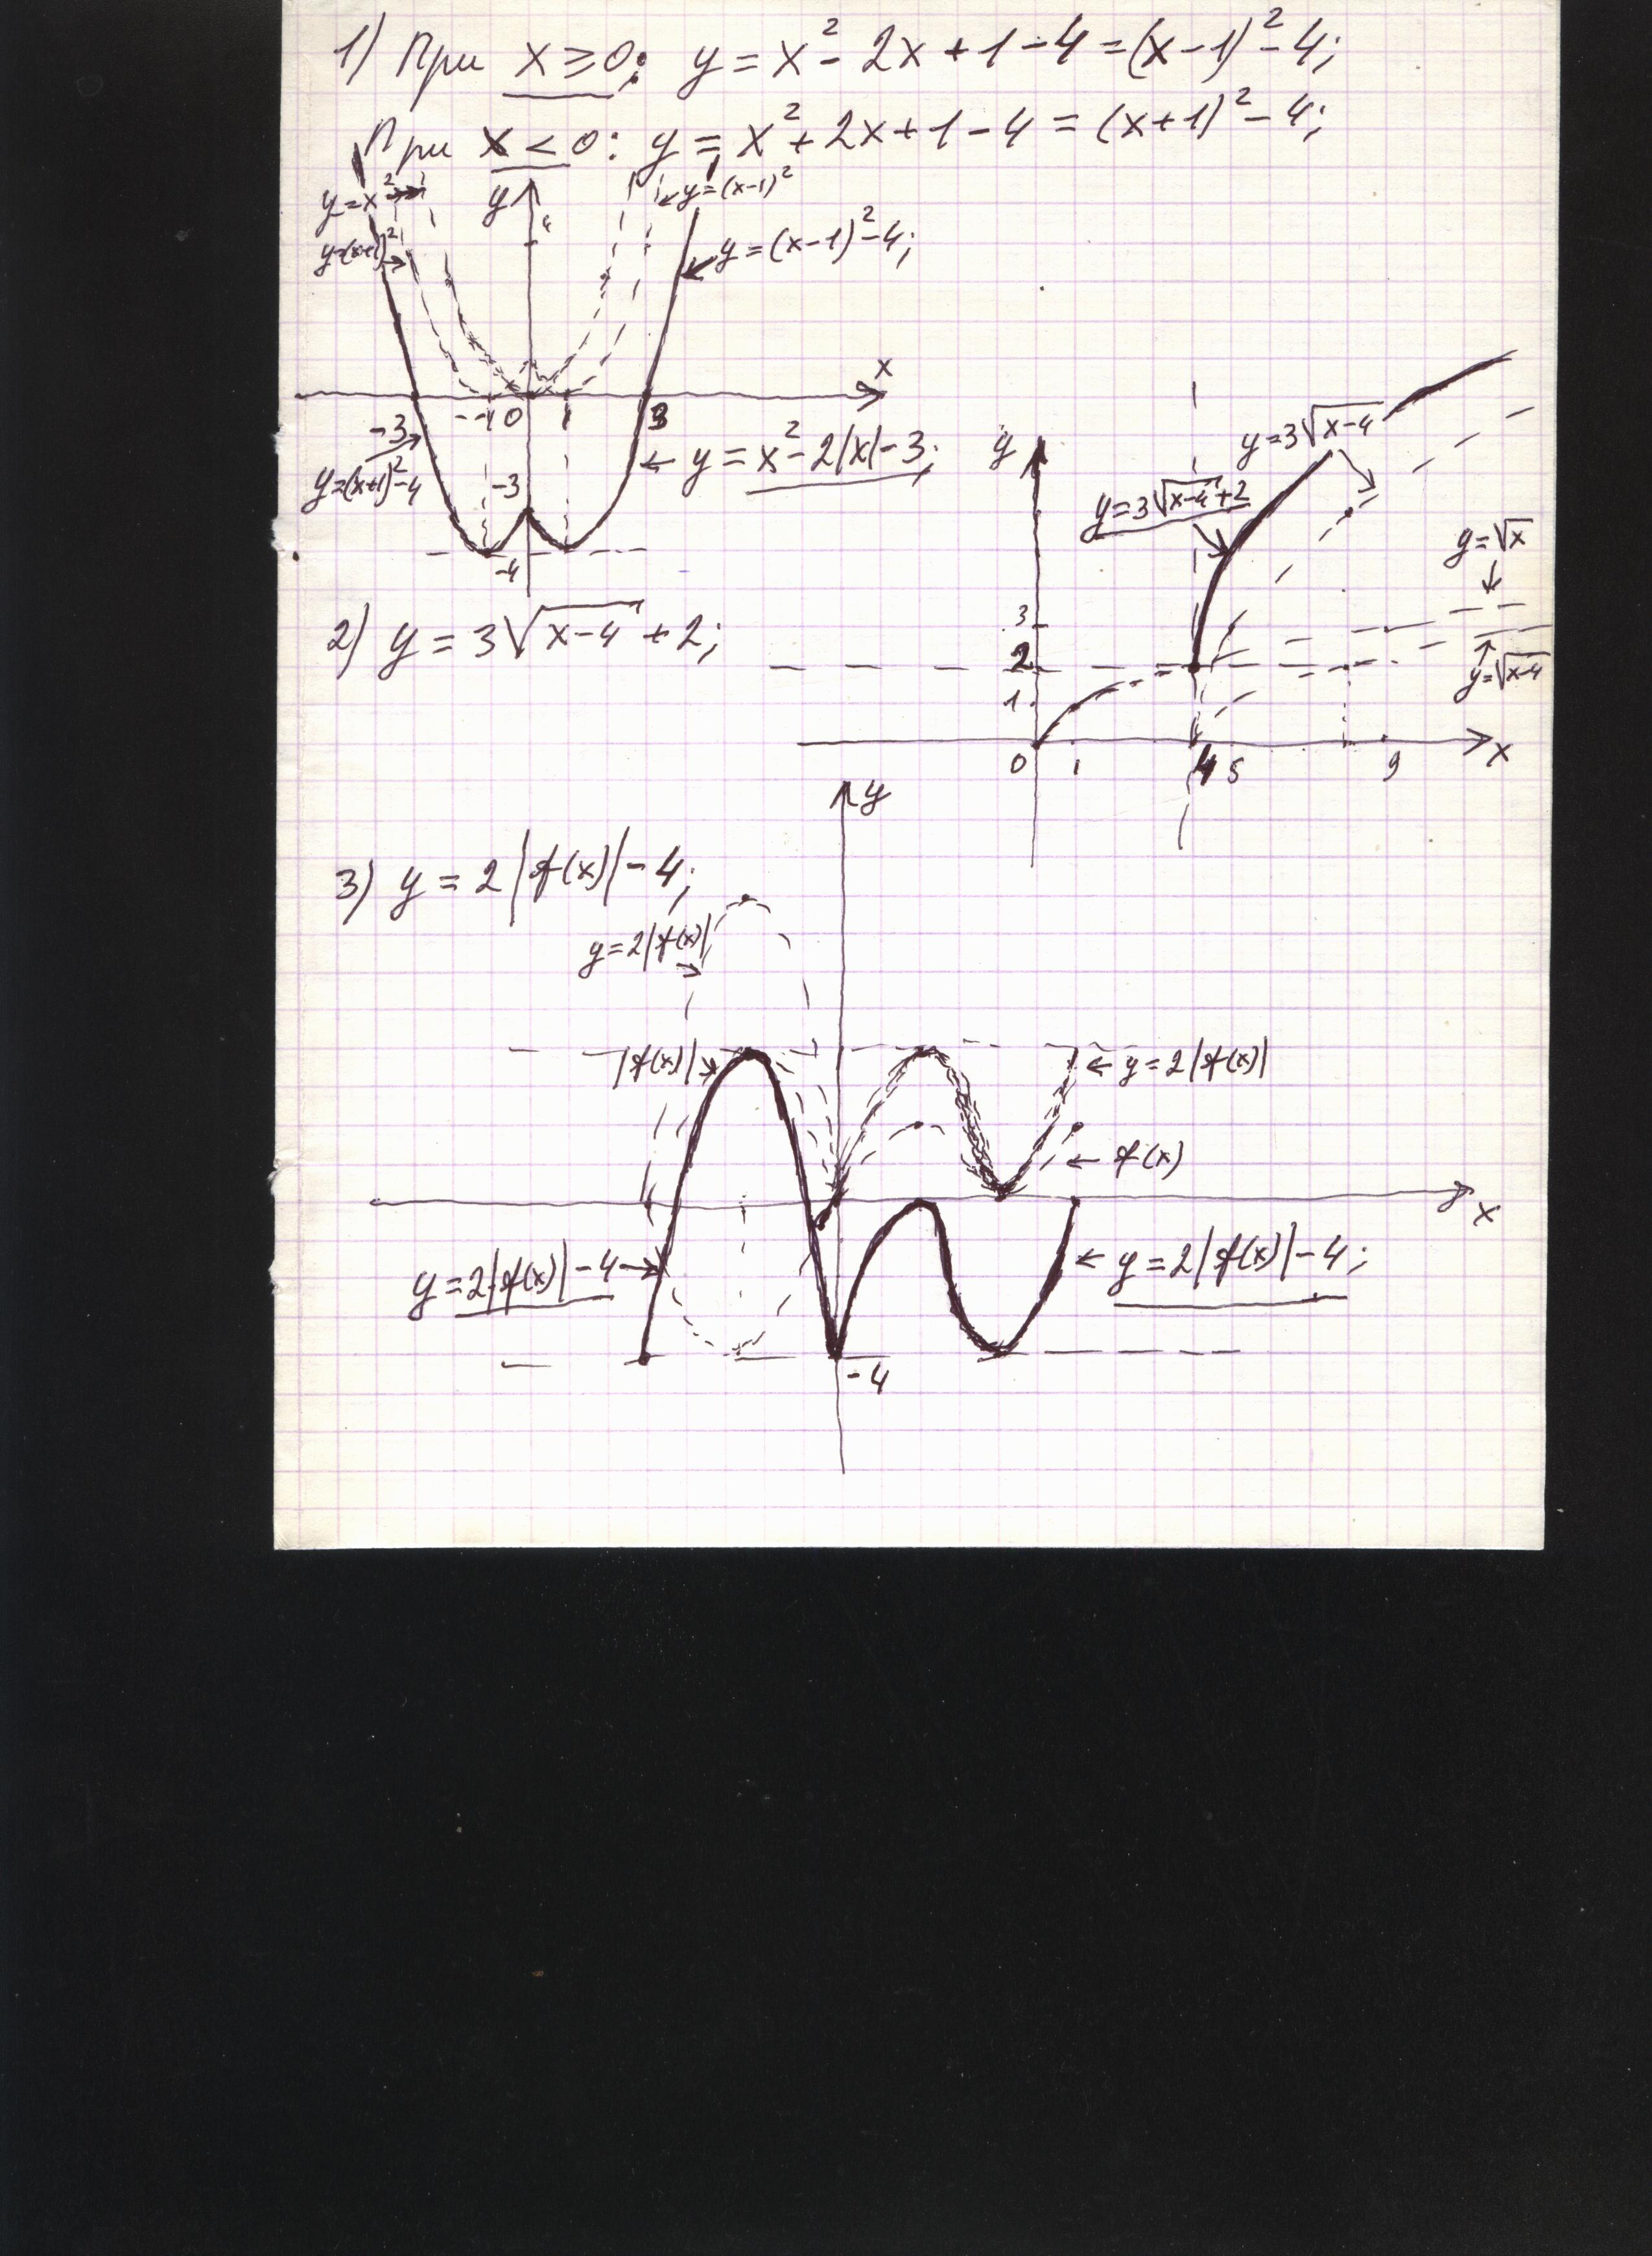 1) При x ≥ 0; y = x² - 2x + 1 - 4 = (x-1)² - 4;
При x < 0: y = x² + 2x + 1 - 4 = (x+1)² - 4;
y=x²
y
y=(x-1)²
4
y=(x+1)²
y=(x-1)²-4;
x
-3
-1
0
1
3
y=(x+1)²-4
-3
y = x² - 2|x| - 3;
-4
y
y=3√x-4
y=3√x-4+2
y=√x
3
2
1
y=√x-4
0
1
4
5
9
x
2) y = 3√x-4 + 2;
y
3) y = 2|f(x)| - 4;
y=2|f(x)|
|f(x)|
y=2|f(x)|
f(x)
x
y=2|f(x)|-4
y=2|f(x)|-4;
-4